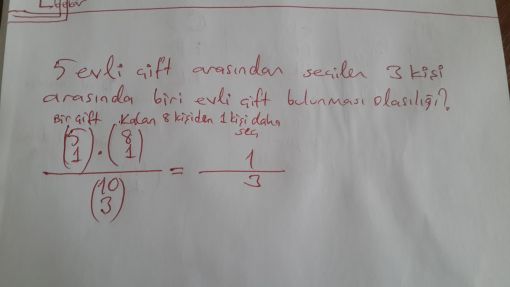 5 evli çift arasından seçilen 3 kişi
arasında biri evli çift bulunması olasılığı?
Bir çift . Kalan 8 kişiden 1 kişi daha
seç
(5 1) . (8 1)
(10 3)
= 1
3